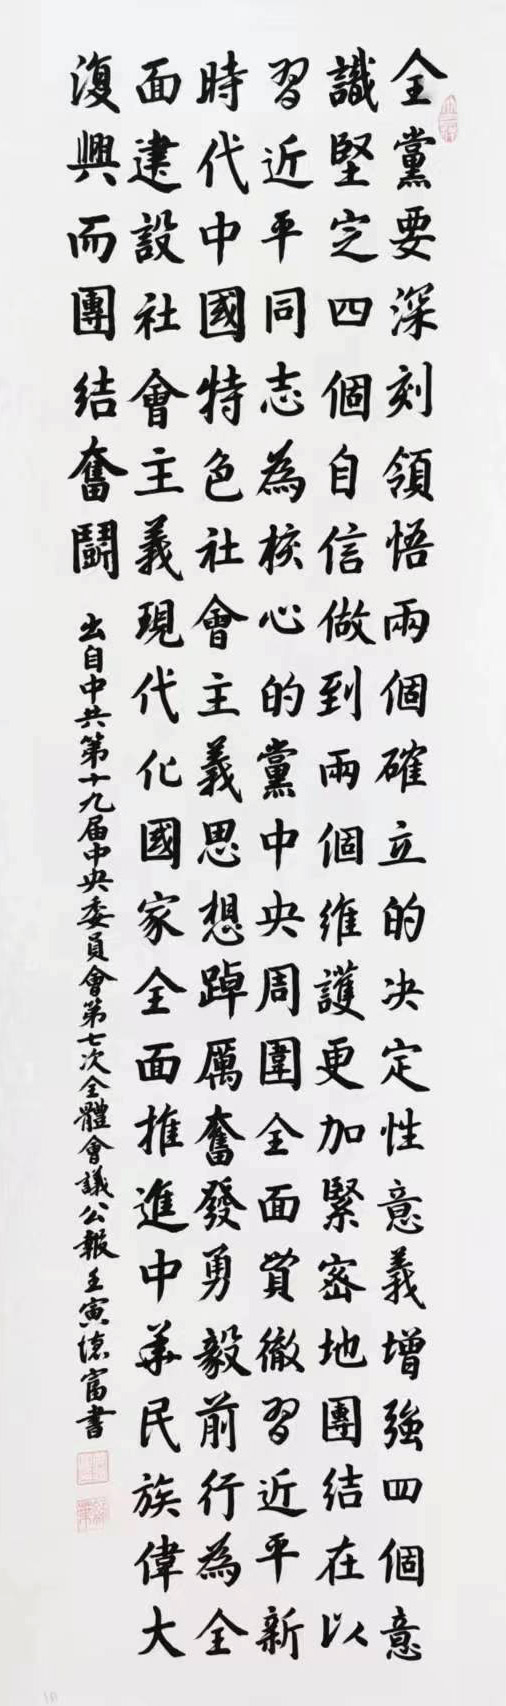 全黨要深刻領悟兩個確立的决定性意義增強四個意
識堅定四個自信做到兩個維護更加緊密地團結在以
習近平同志為核心的黨中央周圍全面貫徹習近平新
時代中國特色社會主義思想踔厲奮發勇毅前行為全
面建設社會主義現代化國家全面推進中華民族偉大
復興而團結奮鬭
出自中共第十九届中央委員會第七次全體會議公報 壬寅德富書